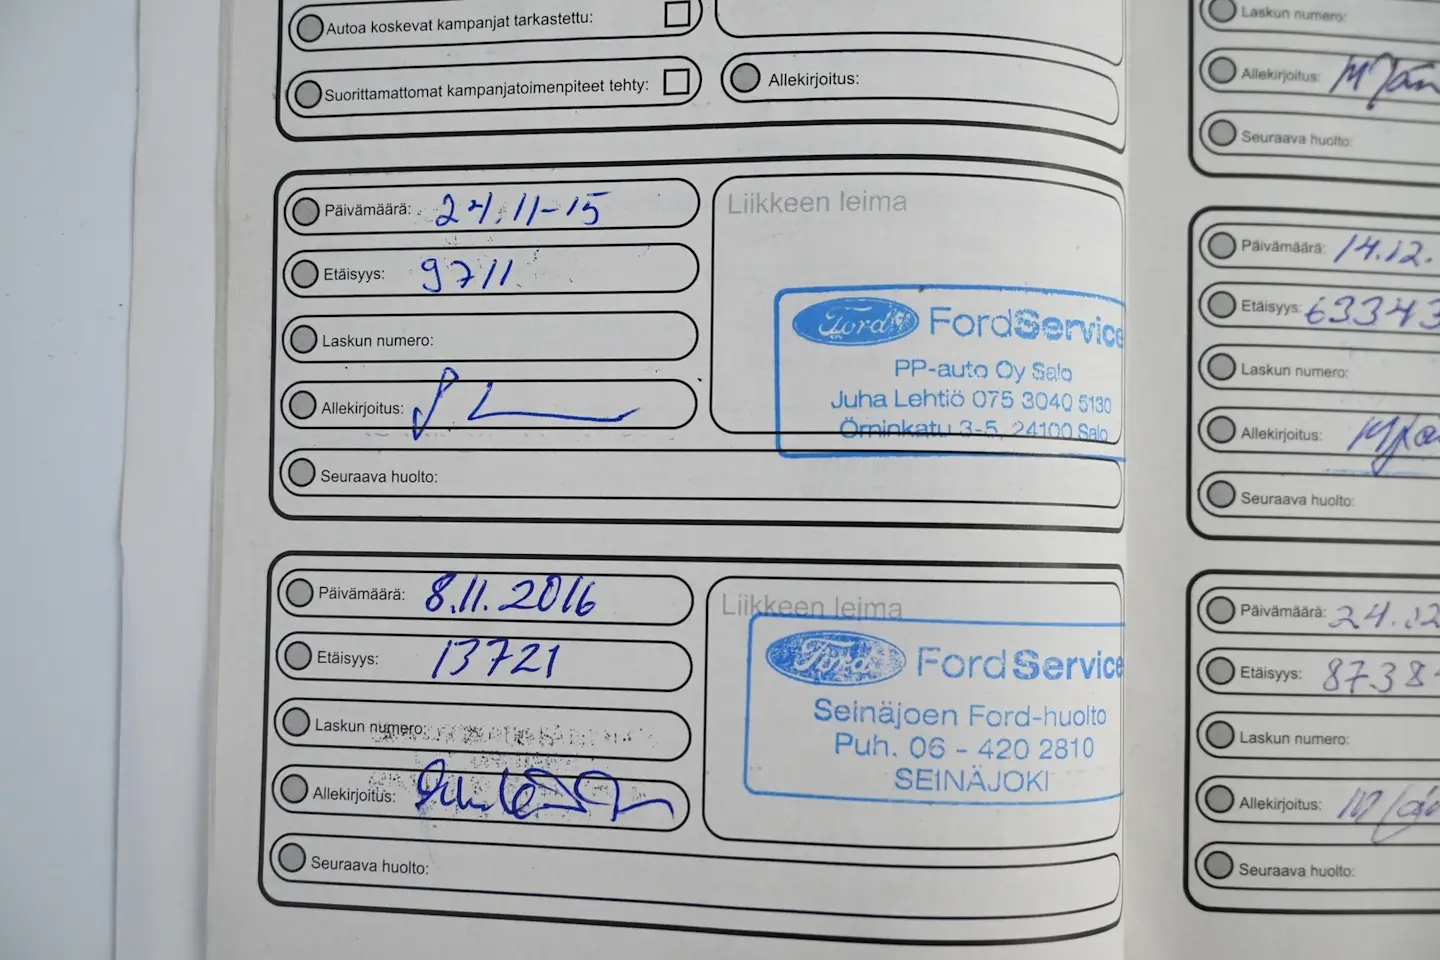 Autoa koskevat kampanjat tarkastettu:
Suorittamattomat kampanjatoimenpiteet tehty:
Allekirjoitus:
Päivämäärä: 24.11-15
Etäisyys: 9711
Laskun numero:
Allekirjoitus:
Seuraava huolto:
Liikkeen leima
Ford FordService
PP-auto Oy Salo
Juha Lehtiö 075 3040 5130
Örninkatu 3-5, 24100 Salo
Päivämäärä: 8.11.2016
Etäisyys: 13721
Laskun numero:
Allekirjoitus:
Seuraava huolto:
Liikkeen leima
Ford FordService
Seinäjoen Ford-huolto
Puh. 06 - 420 2810
SEINÄJOKI
Laskun numero:
Allekirjoitus:
Seuraava huolto:
Päivämäärä: 14.12.
Etäisyys: 63343
Laskun numero:
Allekirjoitus:
Seuraava huolto:
Päivämäärä: 24.02
Etäisyys: 8738
Laskun numero:
Allekirjoitus:
Seuraava huolto: